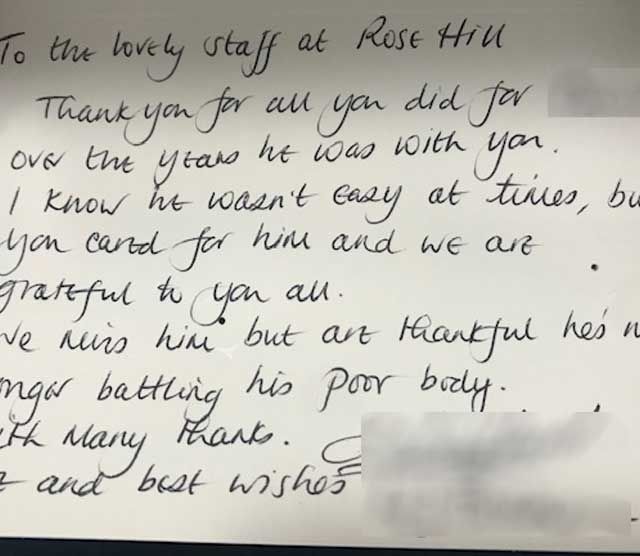 To the lovely staff at Rose Hill
Thank you for all you did for
over the years he was with you.
I know he wasn't easy at times, bu
you cared for him and we are
grateful to you all.
We miss him but are thankful he's n
nger battling his poor body.
ith Many Thanks.
and best wishes